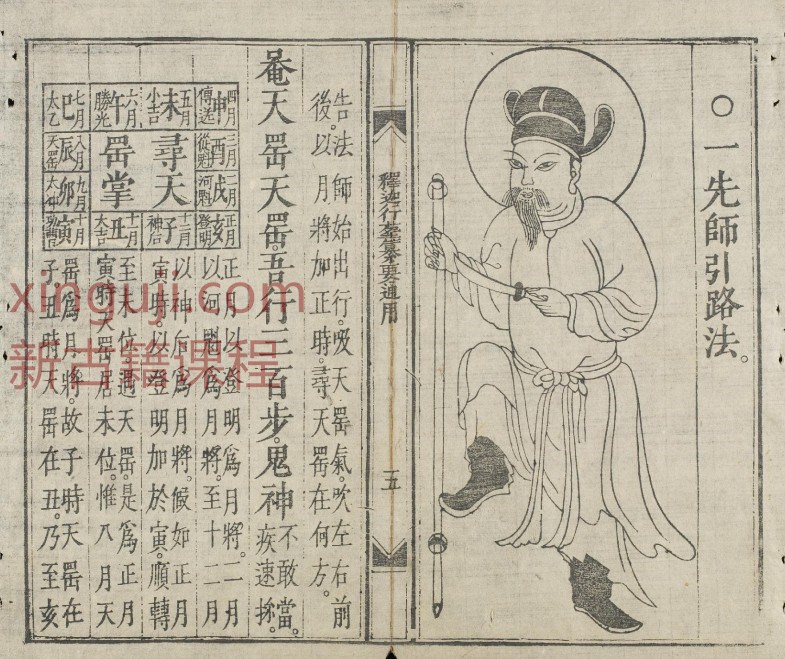 ○一先師引路法。
釋迦行墓纂要通用
五
告法師始出行。吸天罡氣。吹左右前
後。以月將加正時。尋天罡在何方。
菴天罡天罡。吾行三百步。鬼神不敢當。疾速
四月 申 傳送
五月 未 小吉
六月 午 勝光
七月 巳 太乙
三月 酉 從魁
尋天
罡掌
八月 辰 天罡
二月 戌 河魁
九月 卯
正月 亥 登明
十二月 子 神后
十一月 丑 大吉
十月 寅
正月以登明爲月將。二月
以河魁爲月將。至十二月
以神后爲月將。候如正月
寅時。以登明加於寅。順轉
至未位遇天罡。是爲正月
寅時天罡居未位。惟八月天
罡爲月將。故子時天罡在
子丑時天罡在丑。乃至亥
xinguji.com
新古籍课程